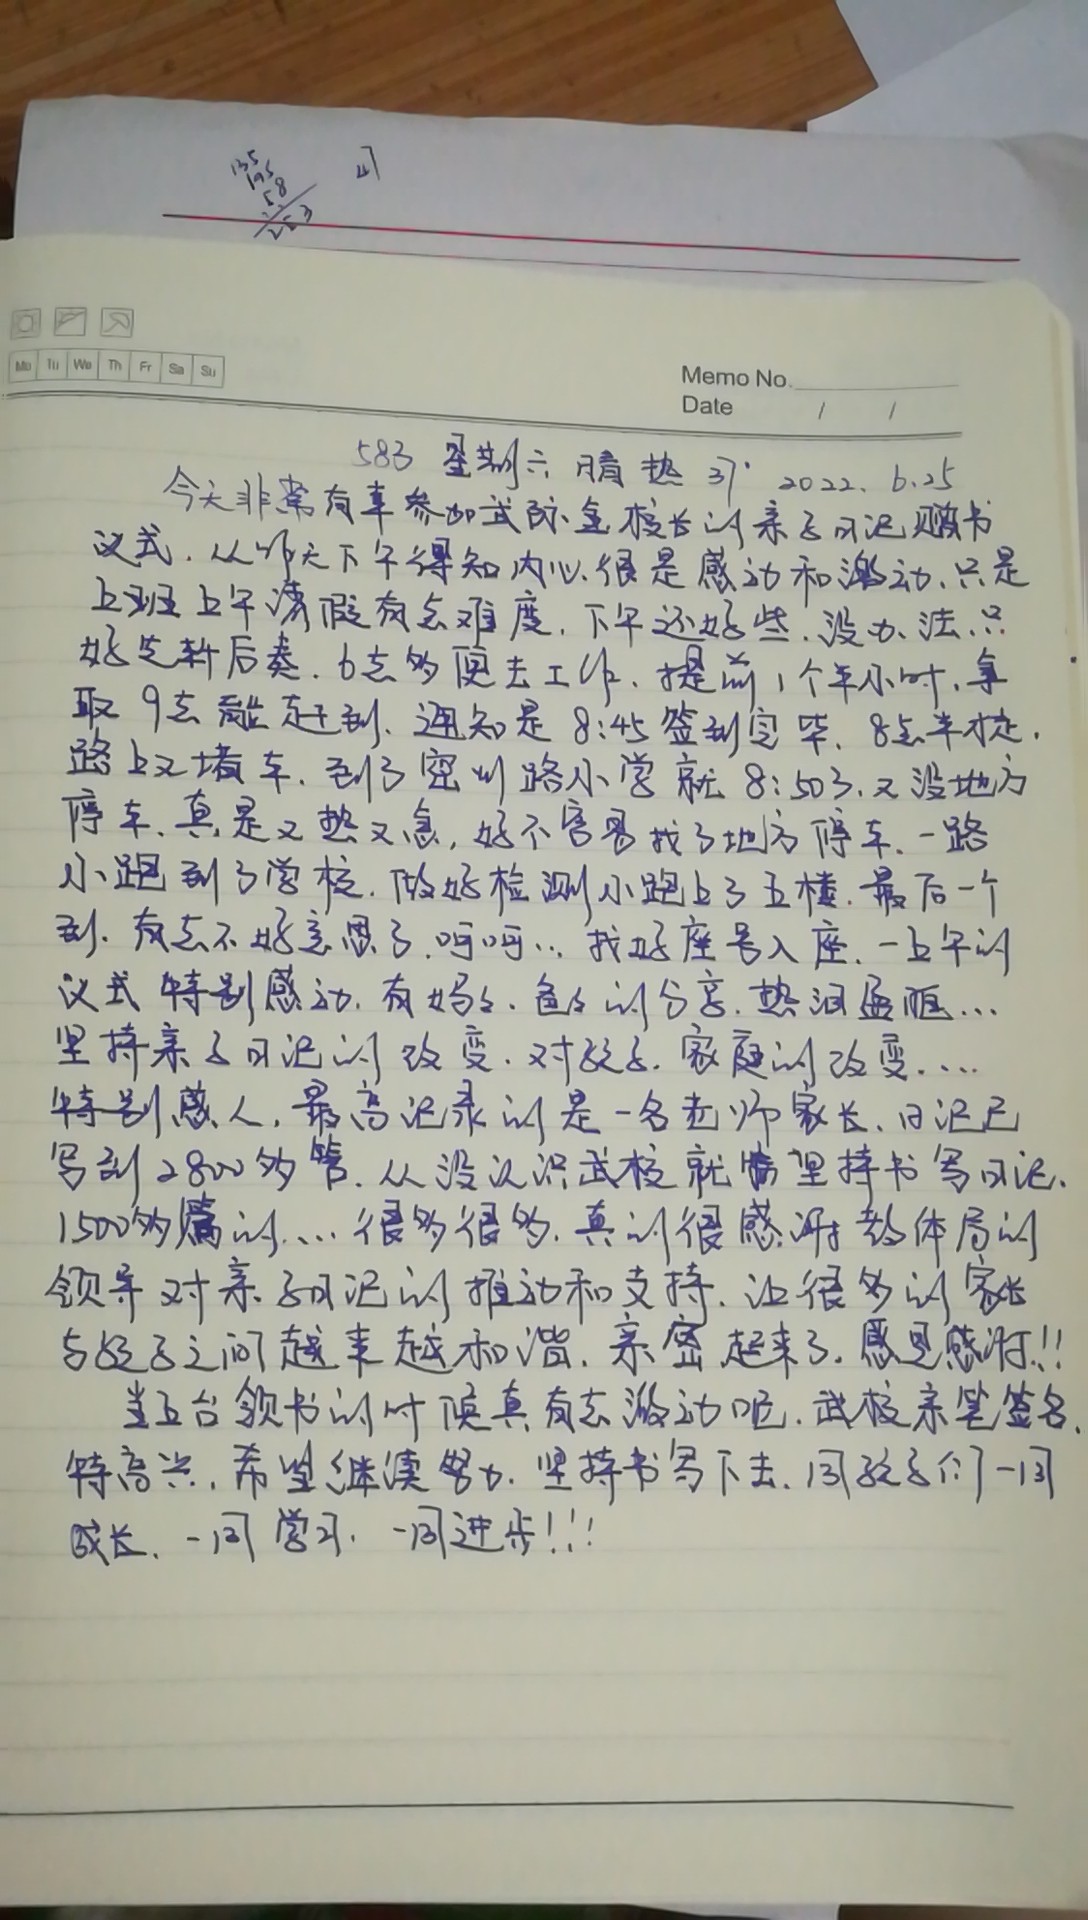 135
195
58
253
Mo Tu We Th Fr Sa Su
Memo No.
Date / /
583 星期六 晴 热 37° 2022.6.25
今天非常有幸参加武际金校长的亲子日记赠书
仪式.从昨天下午得知内心.很是感动和激动.只是
上班上午请假有点难度.下午还好些.没办法.只
好先斩后奏.6点多便去工作.提前1个半小时.争
取9点能赶到.通知是8:45签到完毕.8点半才走.
路上又堵车.到了密州路小学就8:50了.又没地方
停车.真是又热又急,好不容易找了地方停车.一路
小跑到了学校.做好检测小跑上了五楼.最后一个
到.有点不好意思了.呵呵…找好座号入座.一上午的
仪式特别感动.有妈妈.爸爸的分享.热泪盈眶…
坚持亲子日记的改变.对孩子.家庭的改变....
特别感人.最高记录的是一名老师家长.日记已
写到2800多篇.从没认识武校就坚持书写日记.
1500多篇的....很多很多.真的很感谢教体局的
领导对亲子日记的推动和支持.让很多的家长
与孩子之间越来越和谐.亲密起来了.感恩感谢!!
当上台领书的时候真有点激动呢.武校亲笔签名.
特高兴.希望继续努力.坚持书写下去.同孩子们一同
成长.一同学习.一同进步!!!